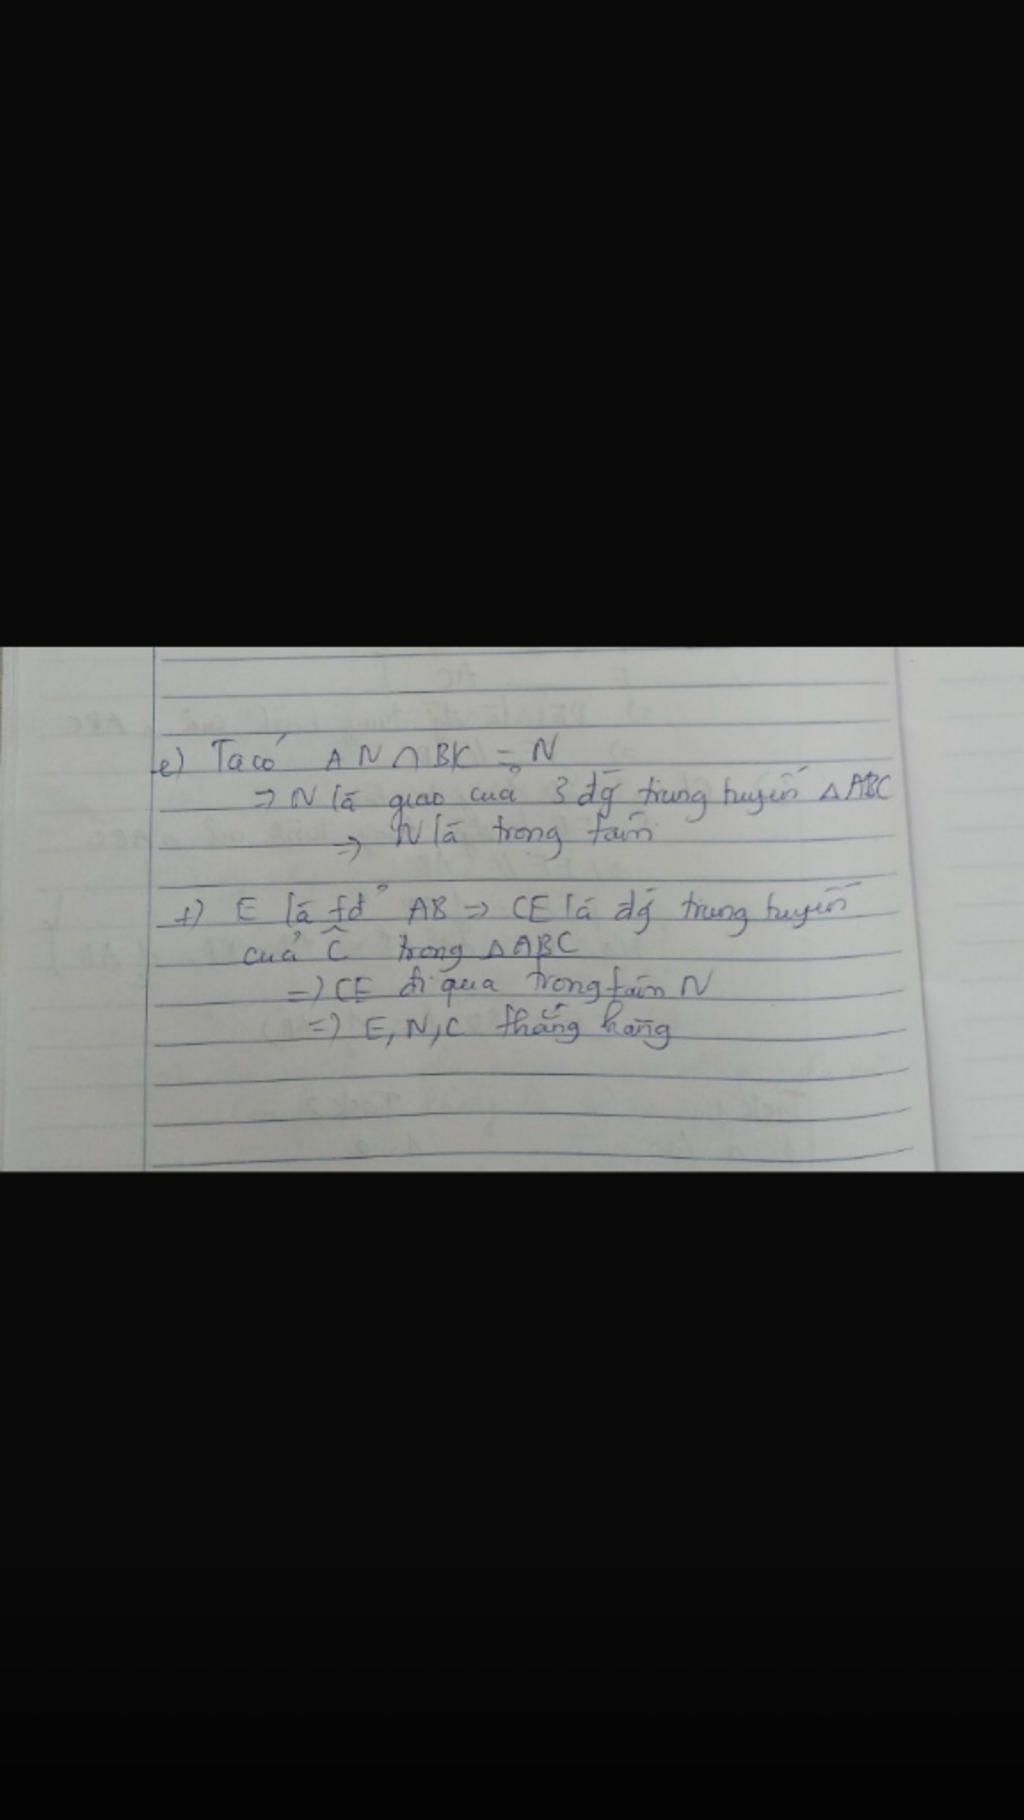 e) Ta có AN ∩ BK = N
⇒ N là giao của 3 đg trung tuyến △ABC
⇒ N là trọng tâm
f) E là tđ AB ⇒ CE là đg trung tuyến
của Ĉ trong △ABC
⇒ CE đi qua trọng tâm N
⇒ E, N, C thẳng hàng